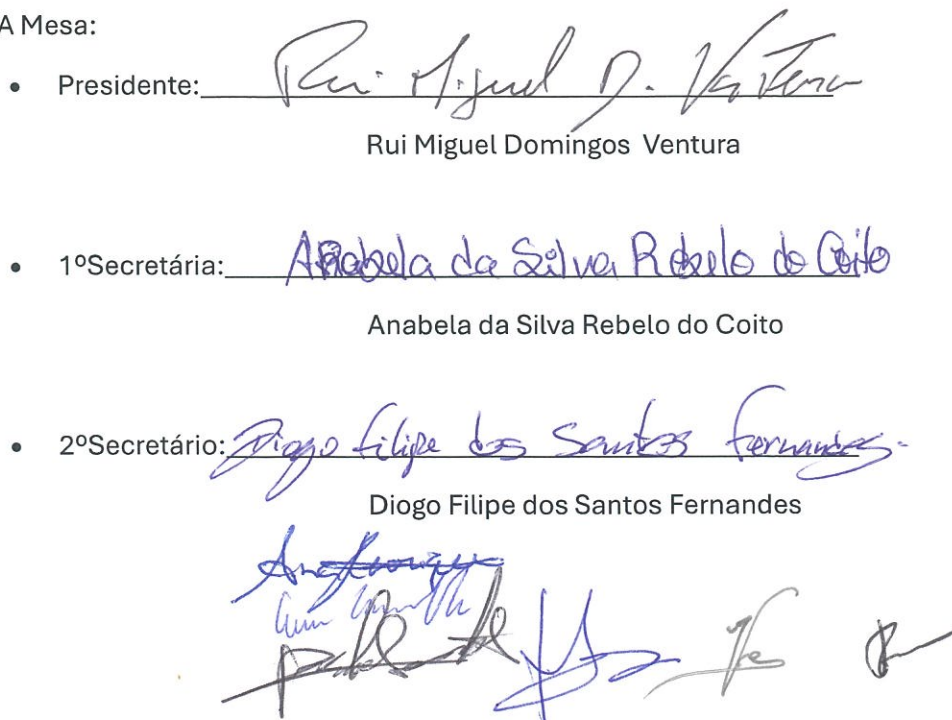 A Mesa:
• Presidente: Rui Miguel D. Ventura
Rui Miguel Domingos Ventura
• 1ºSecretária: Anabela da Silva Rebelo do Coito
Anabela da Silva Rebelo do Coito
• 2ºSecretário: Diogo Filipe dos Santos Fernandes
Diogo Filipe dos Santos Fernandes